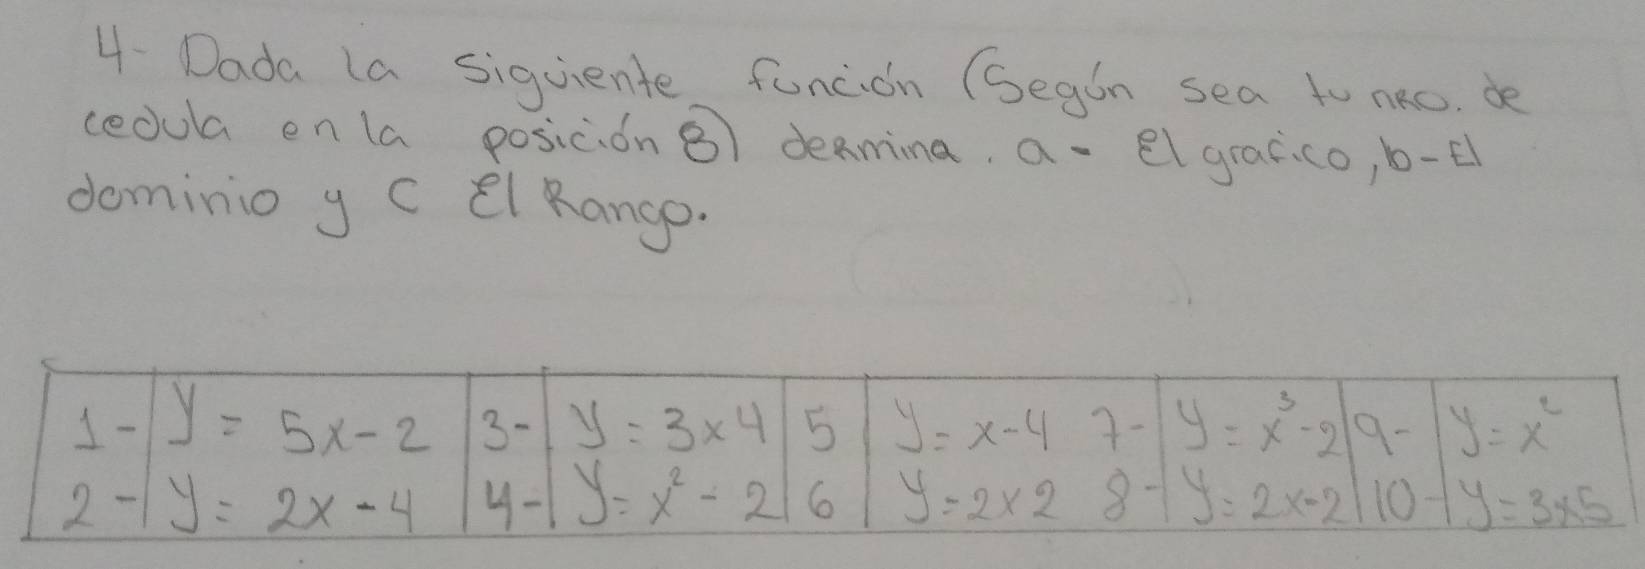 4- Dada la siguiente función (Según sea tu nro. de
cedula en la posición 8) dermina. a- El grafico, b- El
dominio y c El Rango.
1- y = 5x-2 3- y = 3x4 5 y = x-4 7- y = x³-2 9- y = x²
2- y = 2x-4 4- y = x²-2 6 y = 2x2 8- y = 2x-2 10- y = 3x5